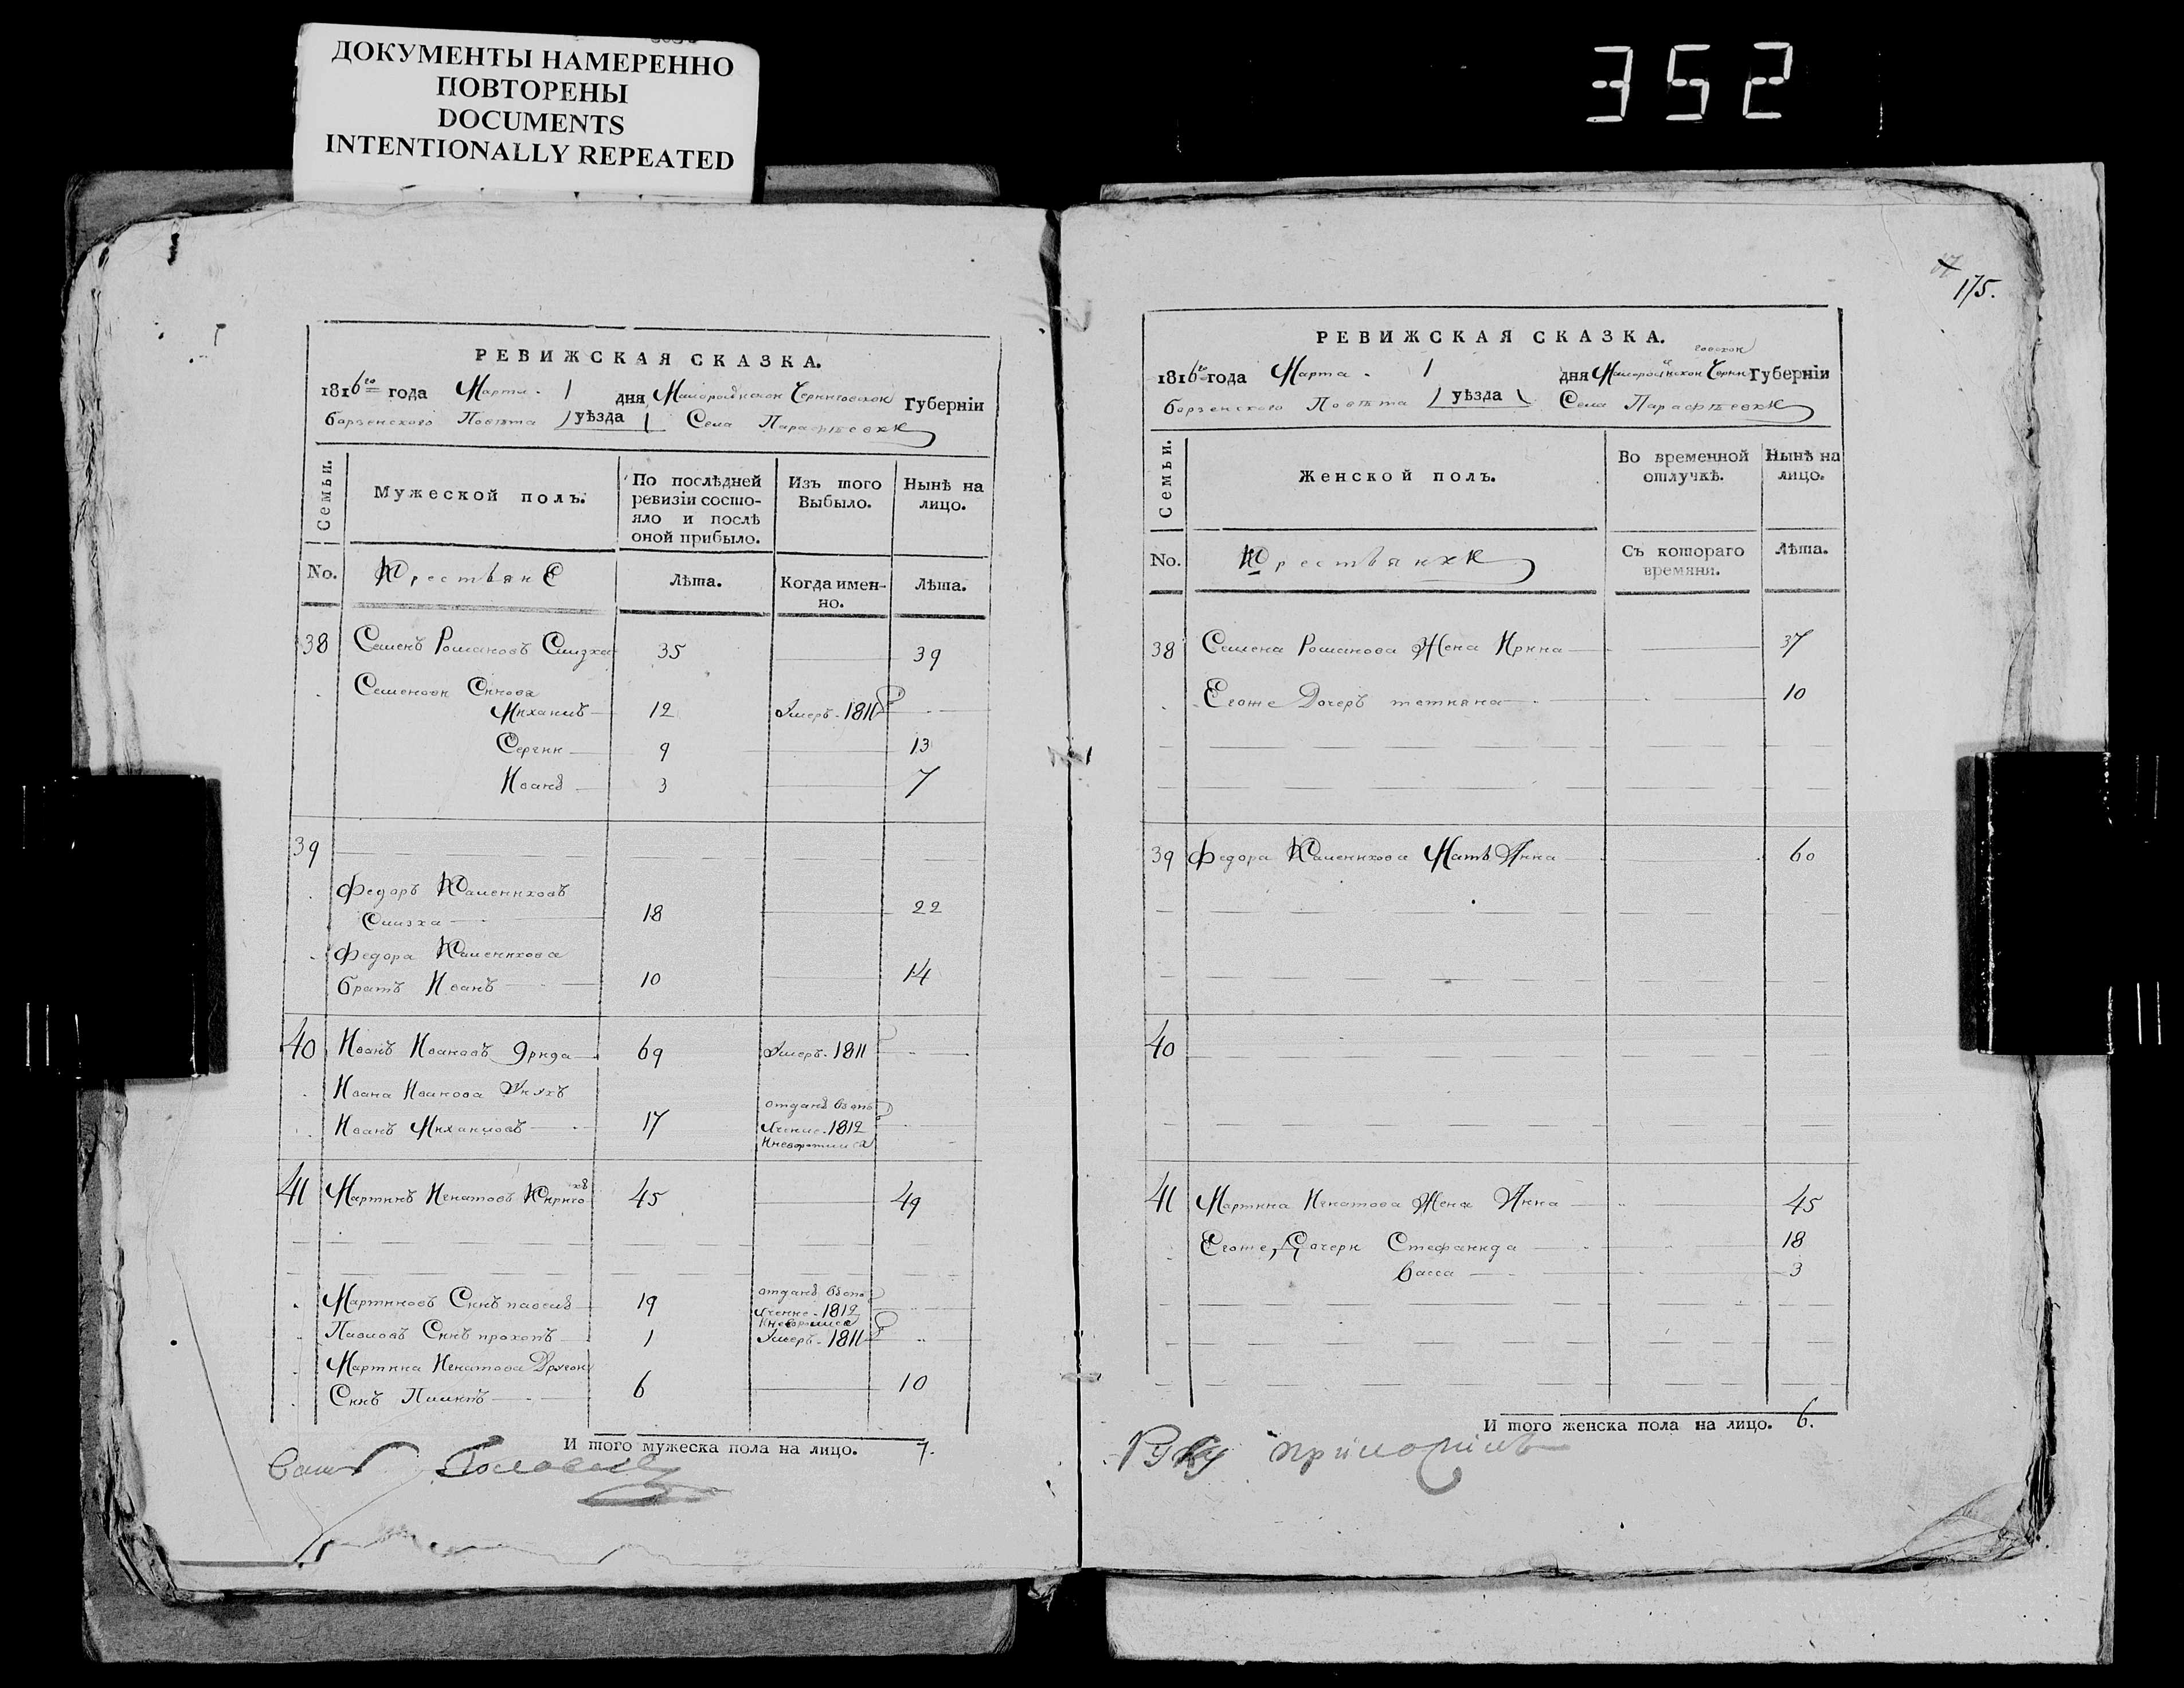 ДОКУМЕНТЫ НАМЕРЕННО
ПОВТОРЕНЫ
DOCUMENTS
INTENTIONALLY REPEATED
352
РЕВИЖСКАЯ СКАЗКА.
1816го года Марта 1 дня Малоросійской Черниговской Губерніи
борзенского Повѣта уѣзда Села Парафѣевки
Семьи.
Мужеской полъ.
По послѣдней
ревизіи состо-
яло и послѣ
оной прибыло.
Изъ того
Выбыло.
Нынѣ на
лицо.
No.
Крестьяне
Лѣта.
Когда имен-
но.
Лѣта.
38 Семенъ Романовъ Слизка 35 39
Семеновы Сынова
Михаилъ 12 Умеръ 1811
Сергий 9 13
Иванъ 3 7
39
Федоръ Калениковъ
Слизка 18 22
Федора Каленикова
братъ Иванъ 10 14
40 Иванъ Ивановъ Ярида 69 Умеръ 1811
Ивана Иванова Унукъ
Иванъ Михаиловъ 17 отданъ въ опо
лчение 1812
и невротился
41 Мартинъ Игнатовъ 45 49
Мартиновъ Синъ павелъ 19 отданъ въ опо
лчение 1812
Павловъ Синъ прокопъ 1 Умеръ 1811
Мартина Игнатова Другой
Синъ Пилипъ 6 10
И того мужеска пола на лицо. 7.
175.
РЕВИЖСКАЯ СКАЗКА.
1816го года Марта 1 дня Малоросійской Черниговской Губерніи
борзенского Повѣта уѣзда Села Парафѣевки
Семьи.
Женской полъ.
Во временной
отлучкѣ.
Нынѣ на
лицо.
No.
Крестьянки
Съ котораго
времяни.
Лѣта.
38 Семена Романова Жена Ирина 37
Егоже Дочеръ татияна 10
39 Федора Каленикова Мать Анна 60
40
41 Мартина Игнатова Жена Анна 45
Егоже Дочери Стефанида 18
Васса 3
И того женска пола на лицо. 6.
Руку приложилъ